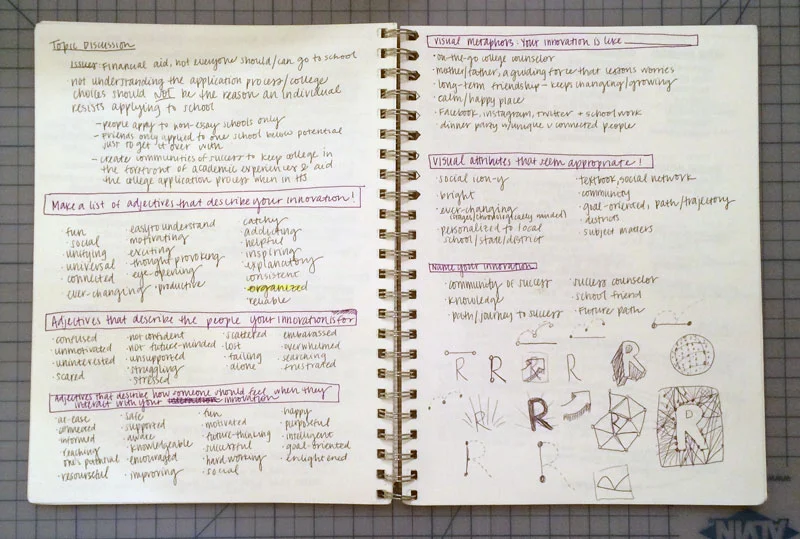 Topic Discussion
Issues: Financial aid, not everyone should/can go to school
not understanding the application process/college
choices should NOT be the reason an individual
resists applying to school
- people apply to non-essay schools only
- friends only applied to one school below potential
just to get it over with
- create communities of success to keep college in
the forefront of academic experiences & aid
the college application process when in HS
Make a list of adjectives that describe your innovation!
· fun
· social
· unifying
· universal
· connected
· ever-changing
· easy to understand
· motivating
· exciting
· thought provoking
· eye-opening
· productive
· catchy
· addicting
· helpful
· inspiring
· explanatory
· consistent
· organized
· reliable
Adjectives that describe the people your innovation is for
· confused
· unmotivated
· uninterested
· scared
· not confident
· not future-minded
· unsupported
· struggling
· stressed
· scattered
· lost
· failing
· alone
· embarassed
· overwhelmed
· searching
· frustrated
Adjectives that describe how someone should feel when they
interact with your innovation
· at-ease
· connected
· informed
· reaching
one's potential
· resourceful
· safe
· supported
· aware
· knowledgeable
· encouraged
· improving
· fun
· motivated
· future-thinking
· successful
· hard working
· social
· happy
· purposeful
· intelligent
· goal-oriented
· enlightened
Visual metaphors: Your innovation is like
· on-the-go college counselor
· mother/father, a guiding force that lessons worries
· long-term friendship - keeps changing/growing
· calm/happy place
· Facebook, instagram, twitter + school work
· dinner party w/unique & connected people
Visual attributes that seem appropriate!
· social icon-y
· bright
· ever-changing
· personalized to local
school/state/district
· textbook, social network
· community
· goal-oriented, path/trajectory
· districts
· subject matters
Name your innovation
· community of success
· knowledge
· path/journey to success
· success counselor
· school friend
· Future path
R
R
R
R
R
R
R
R
R
R
R
R
ALVIN